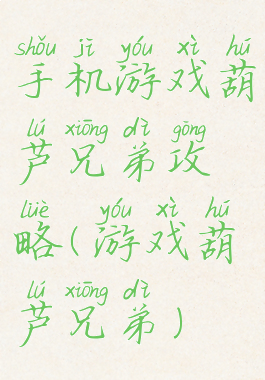 shǒu jī yóu xì hú
手机游戏葫
lú xiōng dì gōng
芦兄弟攻
lüè yóu xì hú
略(游戏葫
lú xiōng dì
芦兄弟)